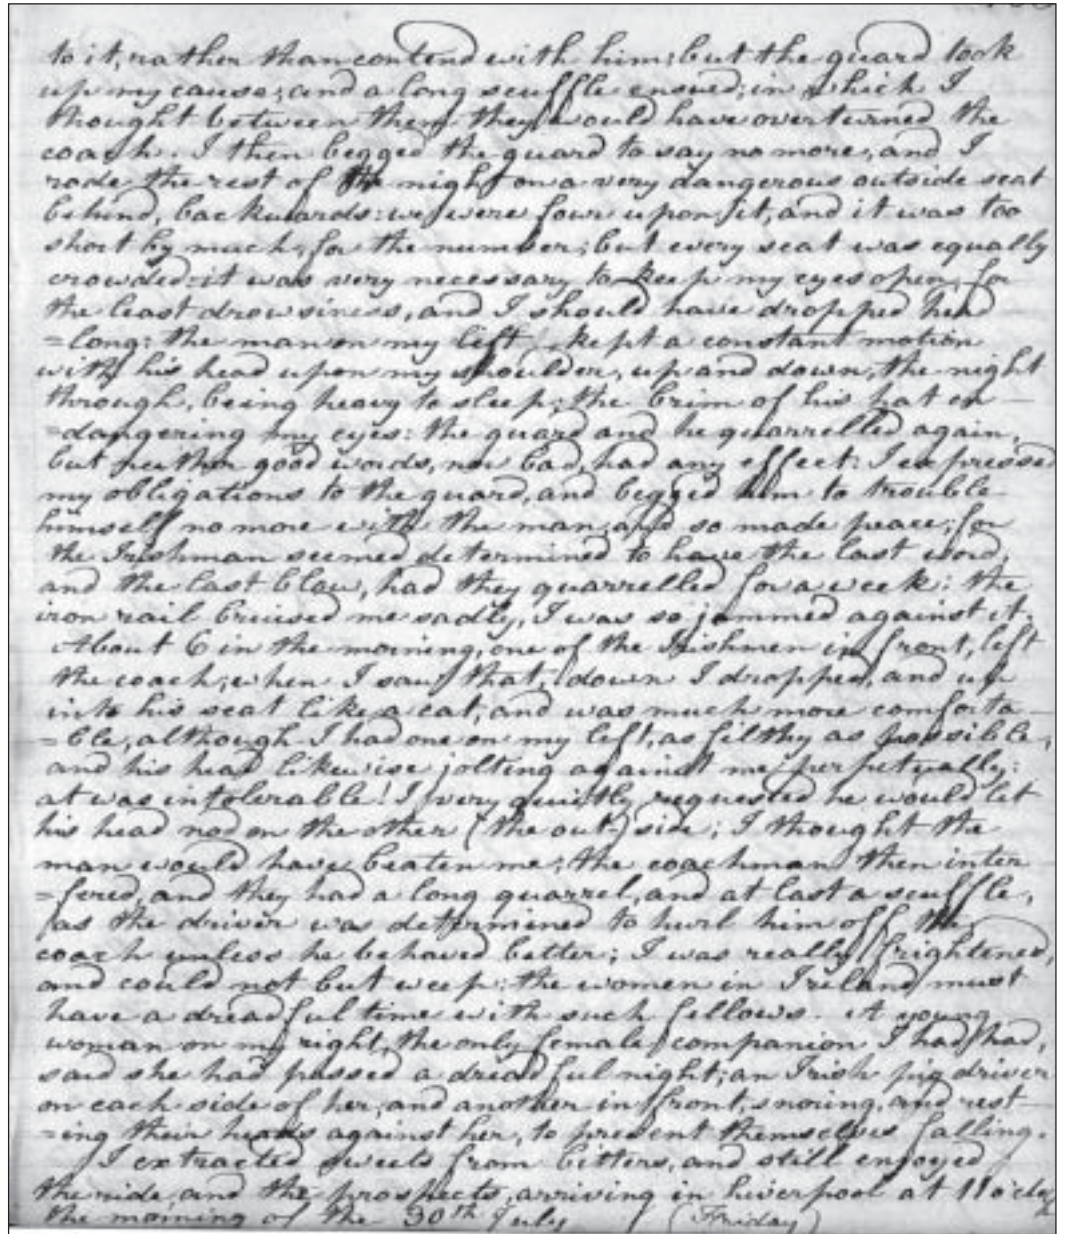 to it, rather than contend with him; but the guard took
up my cause; and a long scuffle ensued; in which I
thought between them they would have overturned the
coach. I then begged the guard to say no more, and I
rode the rest of the night on a very dangerous outside seat
behind, backwards: we were four upon it, and it was too
short by much, for the number; but every seat was equally
crowded: it was very necessary to keep my eyes open, for
the least drowsiness, and I should have dropped head
=long: the man on my left, kept a constant motion
with his head upon my shoulder, up and down, the night
through, being heavy to sleep; the brim of his hat en
=dangering my eyes: the guard and he quarrelled again,
but neither good words, nor bad, had any effect: I expressed
my obligations to the guard, and begged him to trouble
himself no more with the man, and so made peace; for
the Irishman seemed determined to have the last word,
and the last blow, had they quarrelled for a week: the
iron rail bruised me sadly, I was so jammed against it.
About 6 in the morning, one of the Irishmen in front, left
the coach; when I saw that, down I dropped, and up
into his seat like a cat, and was much more comforta
=ble, although I had one on my left, as filthy as possible,
and his head likewise jolting against me perpetually:
at was intolerable! I very quietly requested he would let
his head nod on the other (the out-) side; I thought the
man would have beaten me; the coachman then inter
=fered, and they had a long quarrel, and at last a scuffle,
as the driver was determined to hurl him off the
coach unless he behaved better; I was really frightened,
and could not but weep: the women in Ireland must
have a dreadful time with such fellows. A young
woman on my right, the only female companion I had had,
said she had passed a dreadful night; an Irish pig driver
on each side of her, and another in front, snoring, and rest
=ing their heads against her, to prevent themselves falling.
I extracted sweets from bitters, and still enjoyed
the ride, and the prospects, arriving in Liverpool at 11 o'clock
the morning of the 30th July (Friday)